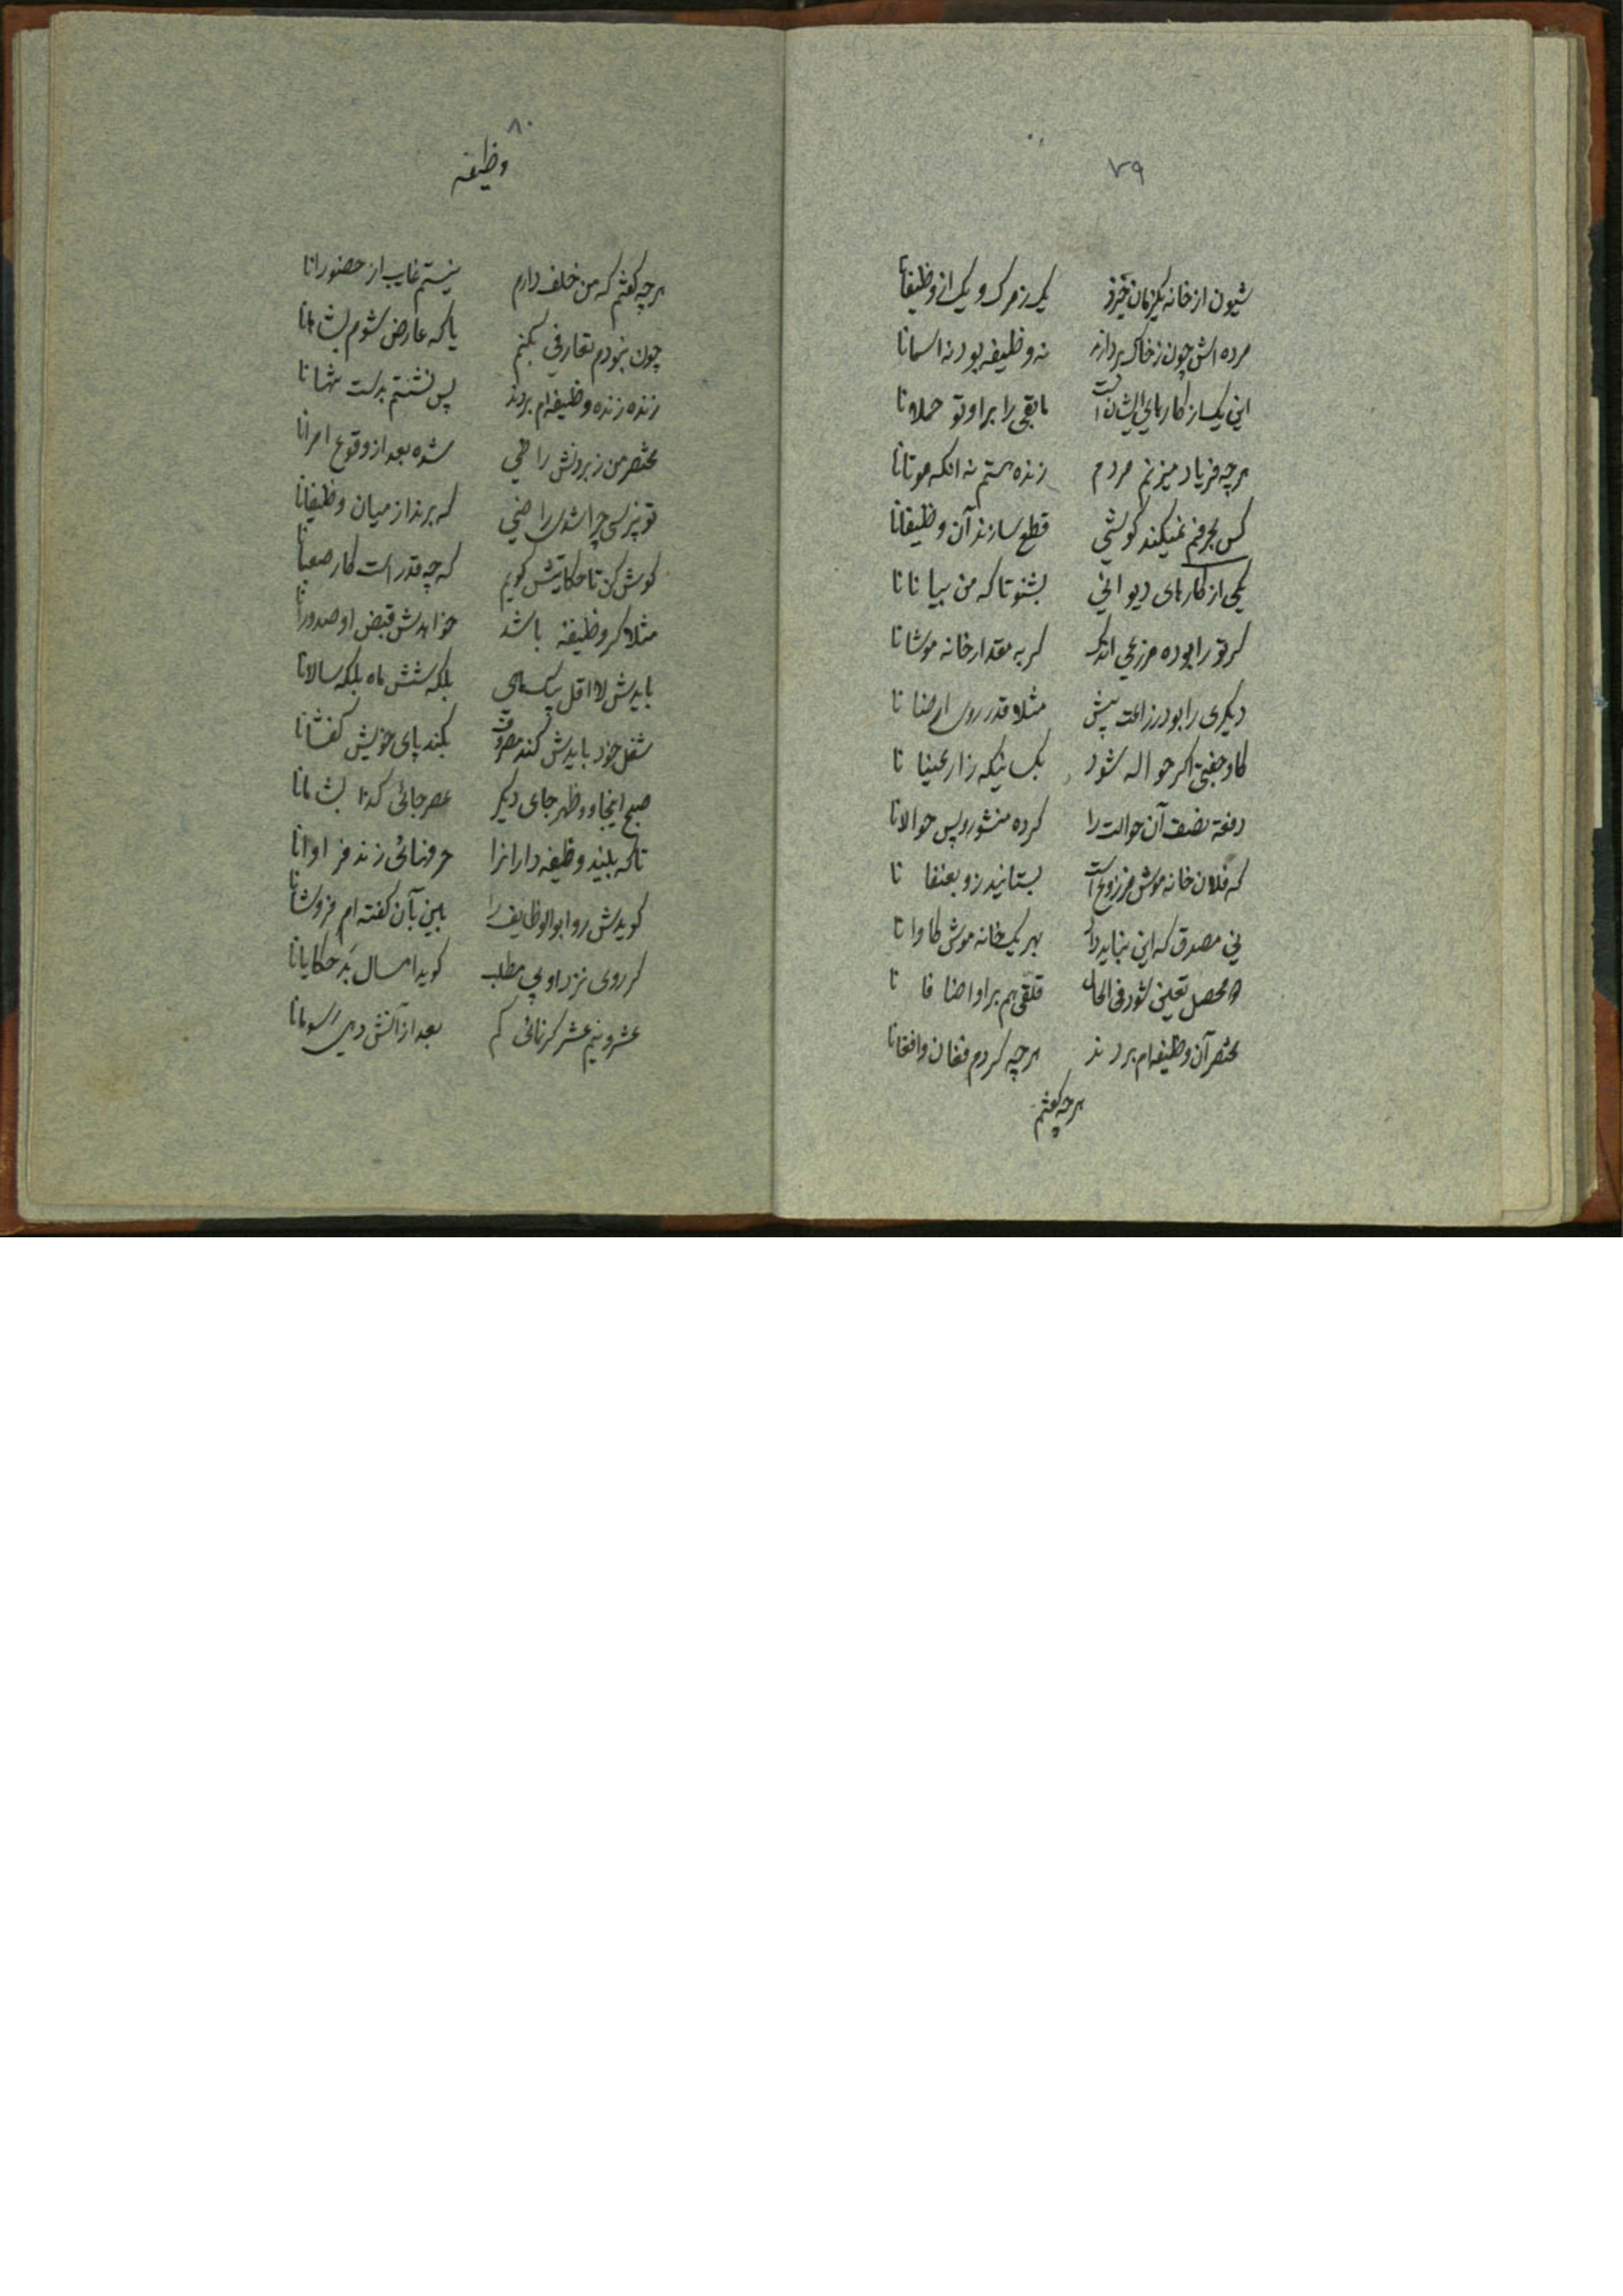 ٧٩
شیون از خانه یکزمان خیزد یک ز مرگ و یک از وظیفانا
مرده اش چون ز خاک بردارند نه وظیفه بود نه اسمانا
این یک از کارهای ایشان است مابقی را برا و تو حملانا
هرچه فریاد میزنم مردم زنده هستم نه انکه موتانا
کس بحرفم نمیکند گوشی قطع سازند آن وظیفانا
یکی از کارهای دیوانی بشنو تا که من بیانانا
گر تو را بوده مزرعی اندک گر به مقدار خانه موشانا
دیگری را بود زراعت پیش مثلا قدر روی ارضانا
گاو جفتی اگر حواله شود یکسانیکه زارعینانا
دفعة نصف آن حوالت را کرده منشور و پس حوالانا
که فلان خانه موش مزروع است بستانید زو بعنفانا
نی مصدق که این بباید داد بهر یک خانه موش گاوانا
محصل تعیین شود فی الحال قلقی هم برا و اضافانا
مختصر آن وظیفه ام بردند هرچه کردم فغان و افغانا
هرچه گفتم
٨٠
وظیفه
هرچه گفتم که من خلف دارم نیستم غایب از حضورانا
چون نبودم تعارفی بکنم یا که عارض شوم بشاهانا
زنده زنده وظیفه ام بردند پس نشستم بدست تنهانا
مختصر من ز بردنش راضی شده بعد از وقوع امرانا
تو نپرسی چرا شدی راضی که برند از میان وظیفانا
گوش کن تا حکایتش گویم که چه قدر است کار صعبانا
مثلا گر وظیفه باشد خواهدش قبض او صدورانا
بایدش لا اقل یکماهی بلکه شش ماه بلکه سالانا
شغل خود بایدش کند موقوف بکند پای خویش کفشانا
صبح اینجا و ظهر جای دیگر عصر جائی که تا بشامانا
تا که بیند وظیفه دارانرا حرفهائی زند فراوانا
گویدش رو ابوالوظایف را بین بآن گفته ام فروشانا
گر روی نزد او پی مطلب گوید امسال بد حکایانا
عشر و نیم عشر گر نمائی کم بعد از آنش دهی رسومانا